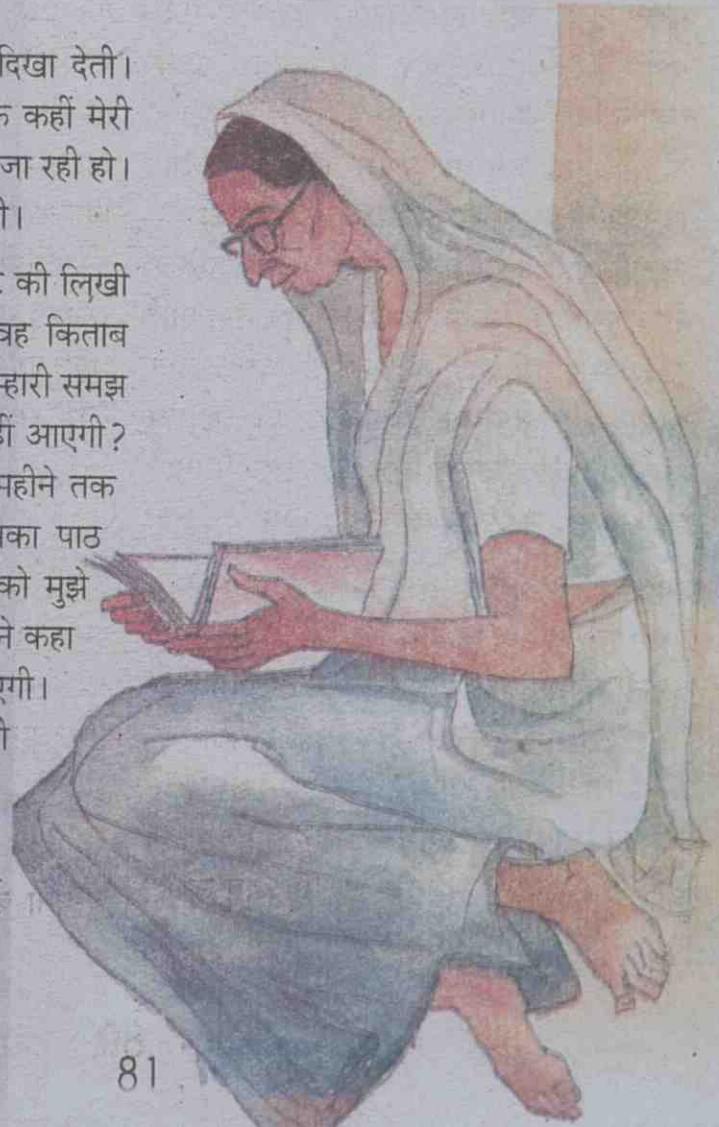 दिखा देती।
कहीं मेरी
जा रही हो।
की लिखी
वह किताब
म्हारी समझ
हीं आएगी?
महीने तक
का पाठ
को मुझे
ने कहा
एगी।
81